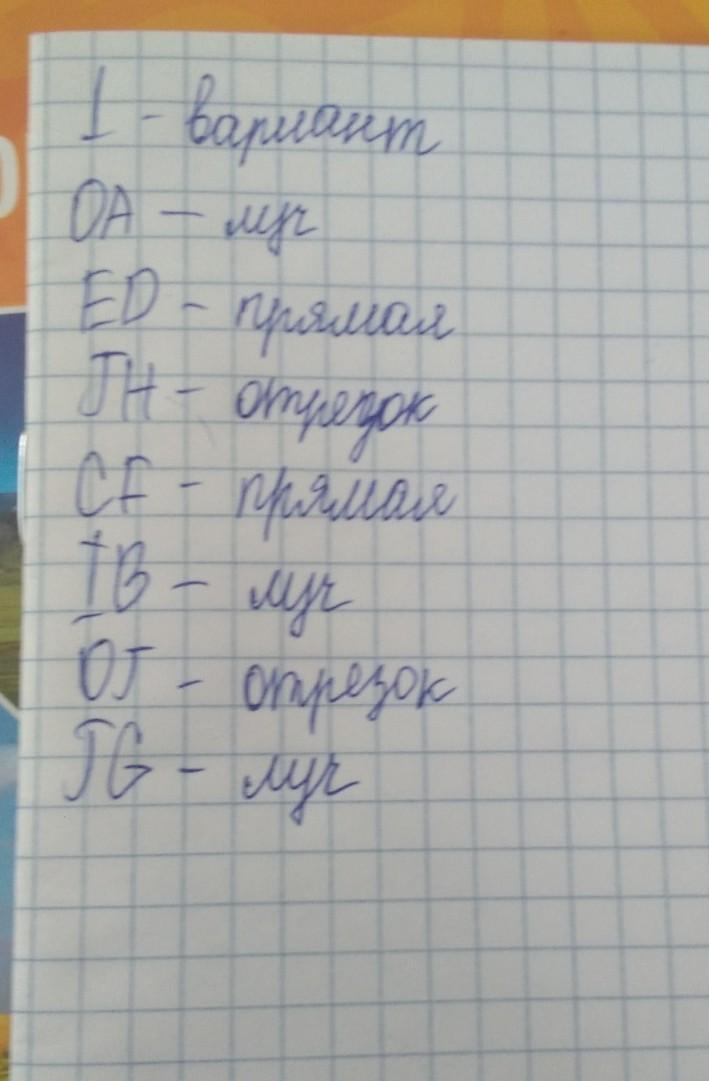 I - вариант
OA — луч
ED - прямая
JH - отрезок
CF - прямая
IB - луч
OJ - отрезок
JG - луч